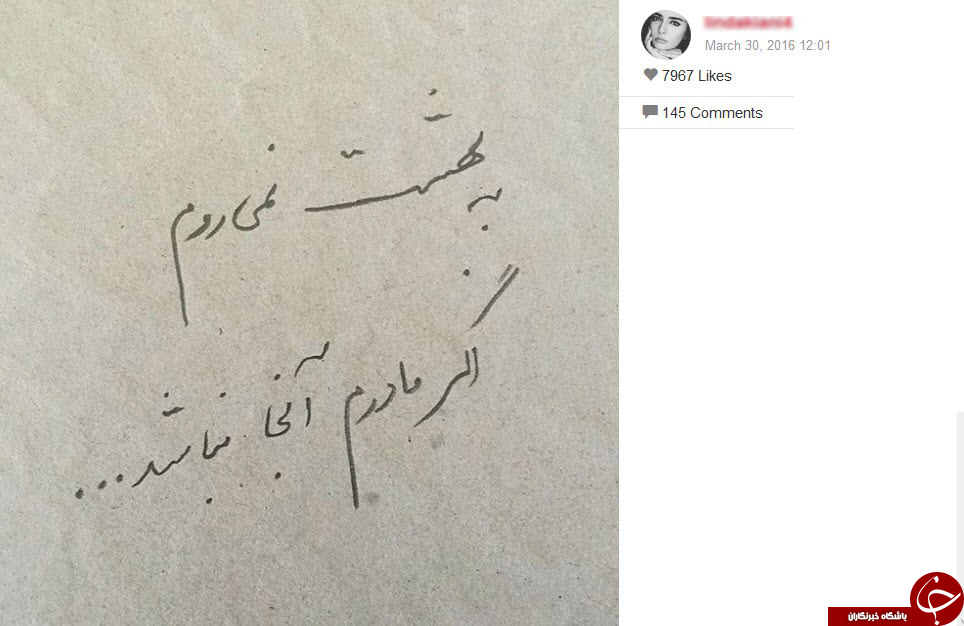 به بهشت نمی‌روم
اگر مادرم آنجا نباشد...
lindakiani4
March 30, 2016 12:01
7967 Likes
145 Comments
باشگاه خبرنگاران